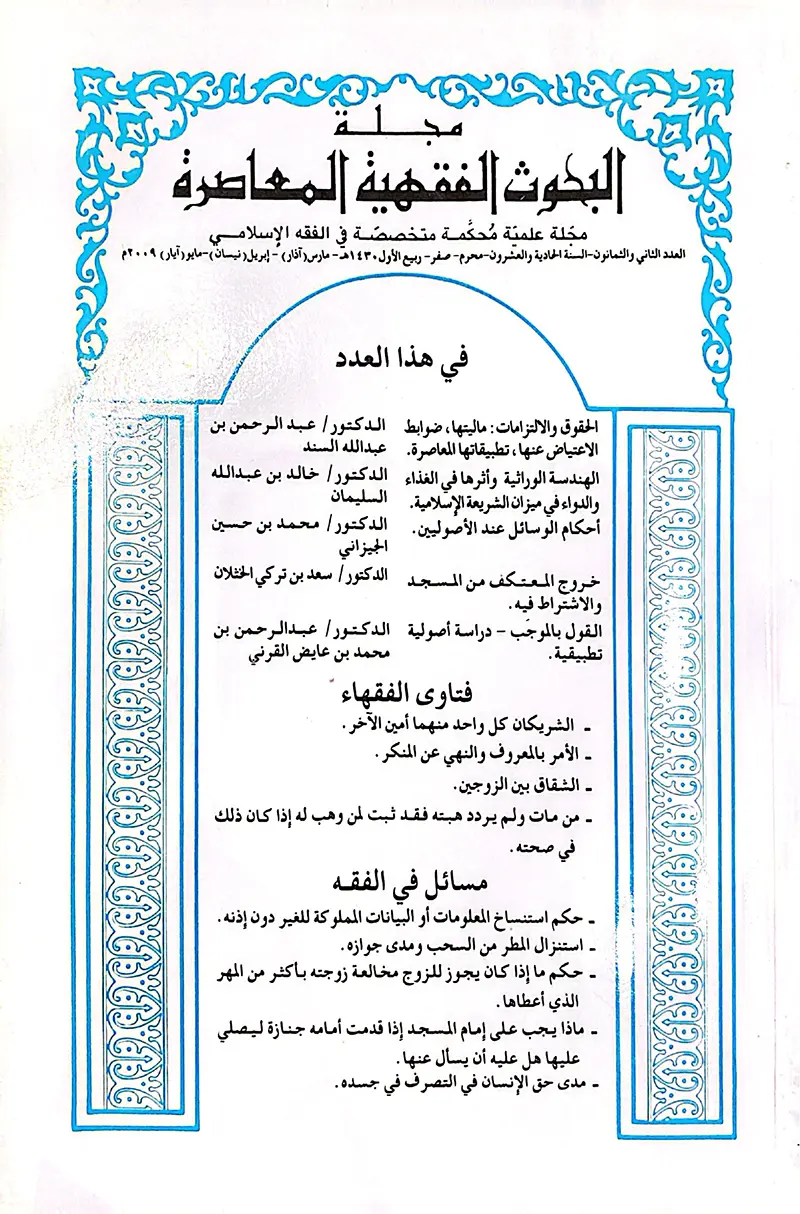 مجلة
البحوث الفقهية المعاصرة
مجلة علميّة مُحكَّمة متخصصّة في الفقه الإسلامي
العدد الثاني والثمانون-السنة الحادية والعشرون-محرم- صفر- ربيع الأول ١٤٣٠هـ- مارس (آذار) - إبريل(نيسان)-مايو(أيار) ٢٠٠٩م
في هذا العدد
الحقوق والالتزامات: ماليتها، ضوابط الدكتور/ عبد الرحمن بن
الاعتياض عنها، تطبيقاتها المعاصرة. عبدالله السند
الهندسة الوراثية وأثرها في الغذاء الدكتور/ خالد بن عبدالله
والدواء في ميزان الشريعة الإسلامية. السليمان
أحكام الوسائل عند الأصوليين. الدكتور/ محمد بن حسين
الجيزاني
خروج المعتكف من المسجد الدكتور/ سعد بن تركي الخثلان
والاشتراط فيه.
القول بالموجَب - دراسة أصولية الدكتور/ عبدالرحمن بن
تطبيقية. محمد بن عايض القرني
فتاوى الفقهاء
- الشريكان كل واحد منهما أمين الآخر.
- الأمر بالمعروف والنهي عن المنكر.
- الشقاق بين الزوجين.
- من مات ولم يردد هبته فقد ثبت لمن وهب له إذا كان ذلك
في صحته.
مسائل في الفقه
- حكم استنساخ المعلومات أو البيانات المملوكة للغير دون إذنه.
- استنزال المطر من السحب ومدى جوازه.
- حكم ما إذا كان يجوز للزوج مخالعة زوجته بأكثر من المهر
الذي أعطاها.
- ماذا يجب على إمام المسجد إذا قدمت أمامه جنازة ليصلي
عليها هل عليه أن يسأل عنها.
- مدى حق الإنسان في التصرف في جسده.